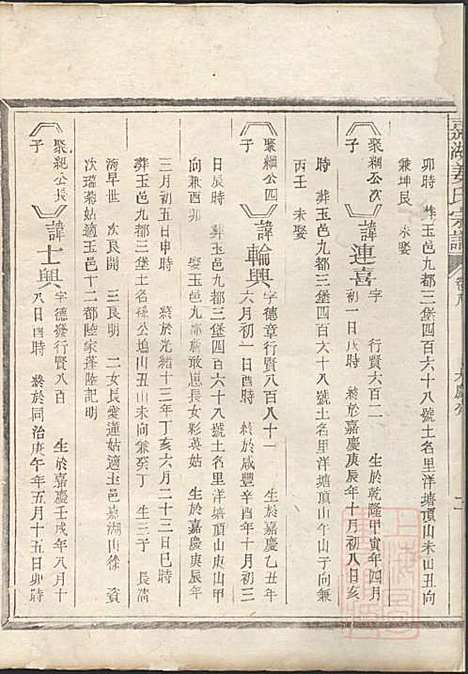 嘉湖姜氏宗譜
卯時 葬玉邑九都三堡四百六十八號土名里洋塘頂山未山丑向
兼坤艮 未娶
聚緗公次子
諱連喜
字 行賢六百二 生於乾隆甲寅年四月
初一日戌時 終於嘉慶庚辰年十月初八日亥
時 葬玉邑九都三堡四百六十八號土名里洋塘頂山午山子向兼
丙壬 未娶
聚緗公四子
諱輪興
字德章行賢八百八十一 生於嘉慶乙丑年
六月初一日酉時 終於咸豐辛酉年十月初三
日辰時 葬玉邑九都三堡四百六十八號土名里洋塘頂山庚山甲
向兼酉卯 娶玉邑九都 詹敢崽長女彩英姑 生於嘉慶庚辰年
三月初五日申時 終於光緒十三年丁亥六月二十三日巳時
葬玉邑九都三堡土名祿公塢山丑山未向兼癸丁 生三子 長
濤早世 次良開 三良明 二女長愛蓮姑適玉邑嘉湖山徐 資
次瑞菊姑適玉邑十二都陸家蓬陸記明
聚緗公長子
諱士興
字德發行賢八百 生於嘉慶壬戌年八月十
八日酉時 終於同治庚午年五月十五日卯時